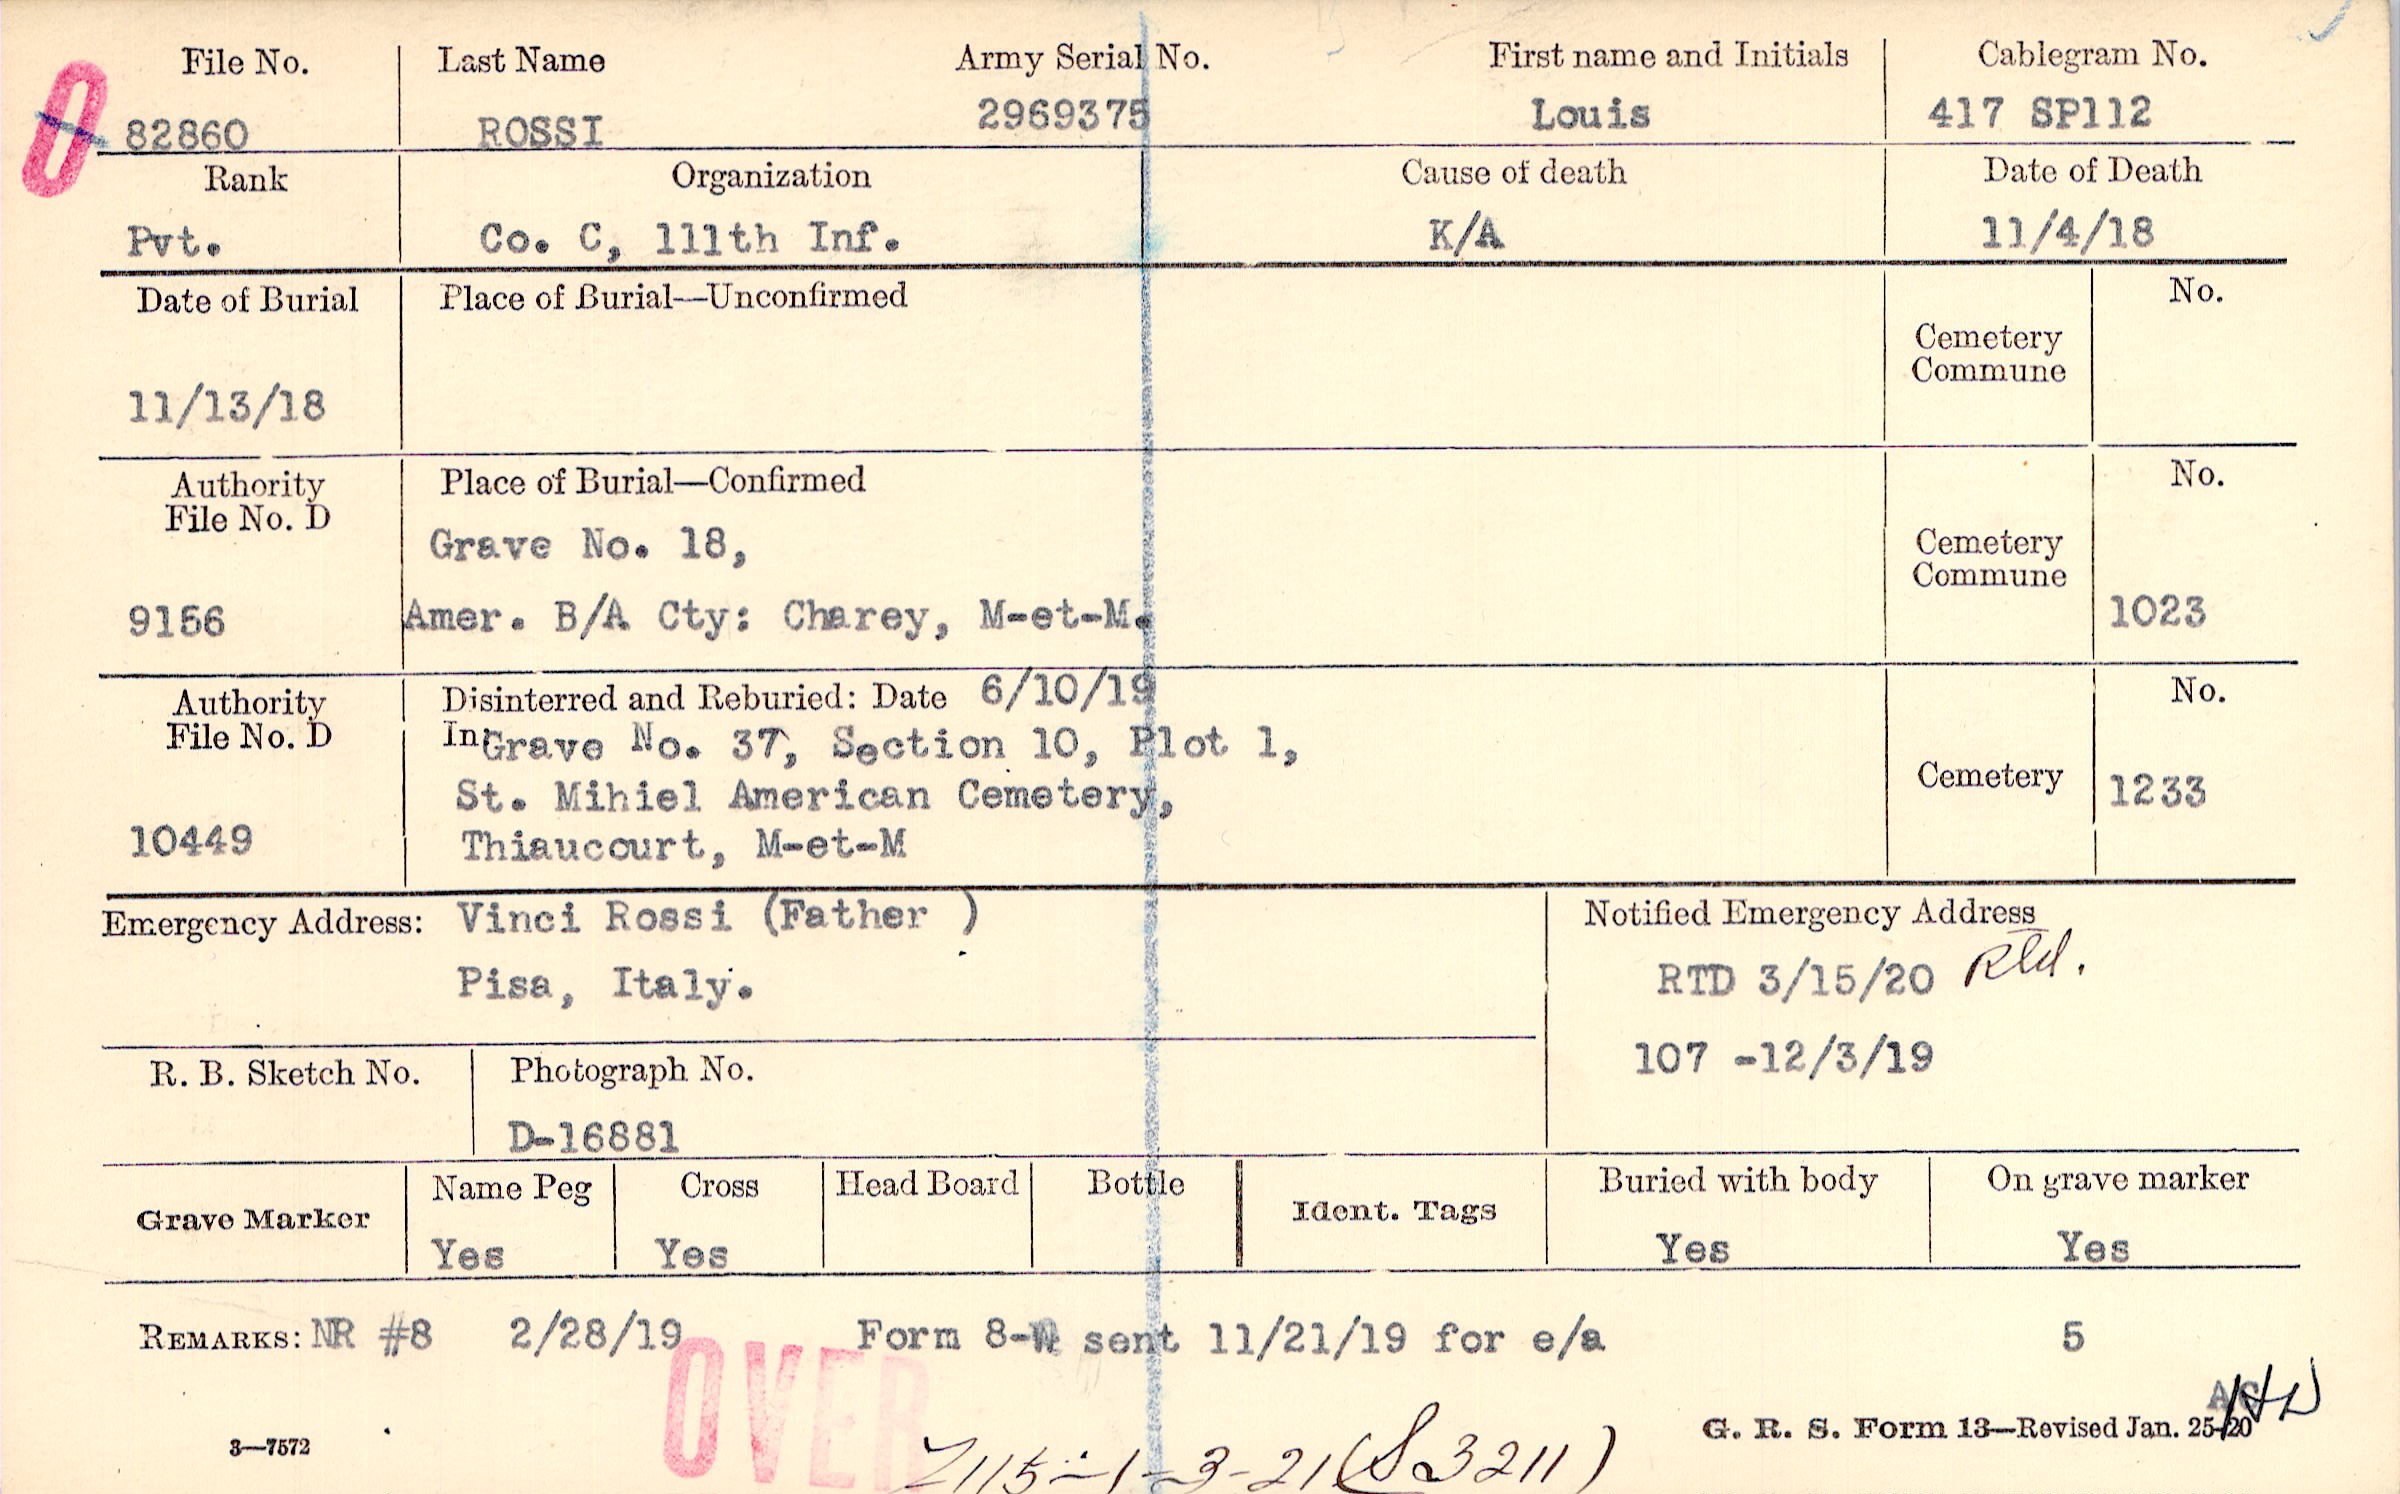 File No. Last Name Army Serial No. First name and Initials Cablegram No.
0 82860 ROSSI 2969375 Louis 417 SP112
Rank Organization Cause of death Date of Death
Pvt. Co. C, 111th Inf. K/A 11/4/18
Date of Burial Place of Burial—Unconfirmed No.
Cemetery
Commune
11/13/18
Authority Place of Burial—Confirmed No.
File No. D
Grave No. 18,
Cemetery
Commune
9156 Amer. B/A Cty: Charey, M-et-M. 1023
Authority Disinterred and Reburied: Date 6/10/19 No.
File No. D In Grave No. 37, Section 10, Plot 1,
St. Mihiel American Cemetery, Cemetery 1233
10449 Thiaucourt, M-et-M
Emergency Address: Vinci Rossi (Father ) Notified Emergency Address
Pisa, Italy. RTD 3/15/20 Rtd.
107 -12/3/19
R. B. Sketch No. Photograph No.
D-16881
Grave Marker Name Peg Cross Head Board Bottle Ident. Tags Buried with body On grave marker
Yes Yes Yes Yes
REMARKS: NR #8 2/28/19 Form 8-W sent 11/21/19 for e/a 5
OVER
G. R. S. Form 13—Revised Jan. 25-20
3—7572